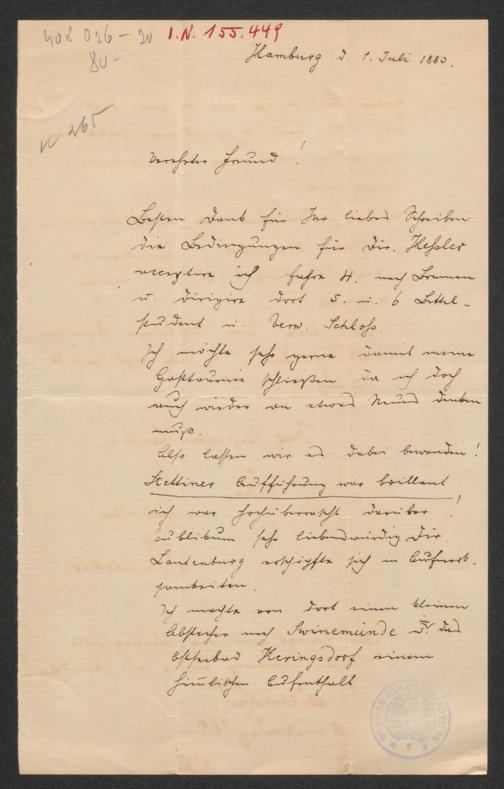 408026-20 I.N. 155.449
80-
Hamburg d. 1. Juli 1883.
Verehrter Freund!
Besten Dank für Ihr liebes Schreiben
die Bedingungen für Dir. Heßler
acceptire ich fahre 4. nach Bremen
u. dirigire dort 5. u. 6 Bettel-
student u. Verw. Schloß.
Ich möchte sehr gerne damit meine
Gasttournée schließen da ich doch
auch wieder an etwas Neues denken
muß.
Also lassen wir es dabei bewenden!
Stettiner Aufführung war brillant
ich war hochüberrascht darüber!
Publikum sehr liebenswürdig Dir.
Lautenburg erschöpfte sich in Aufmerk-
samkeiten.
Ich machte von dort einen kleinen
Abstecher nach Swinemünde u. das
Ostseebad Heringsdorf einem
himmlischen Aufenthalt.